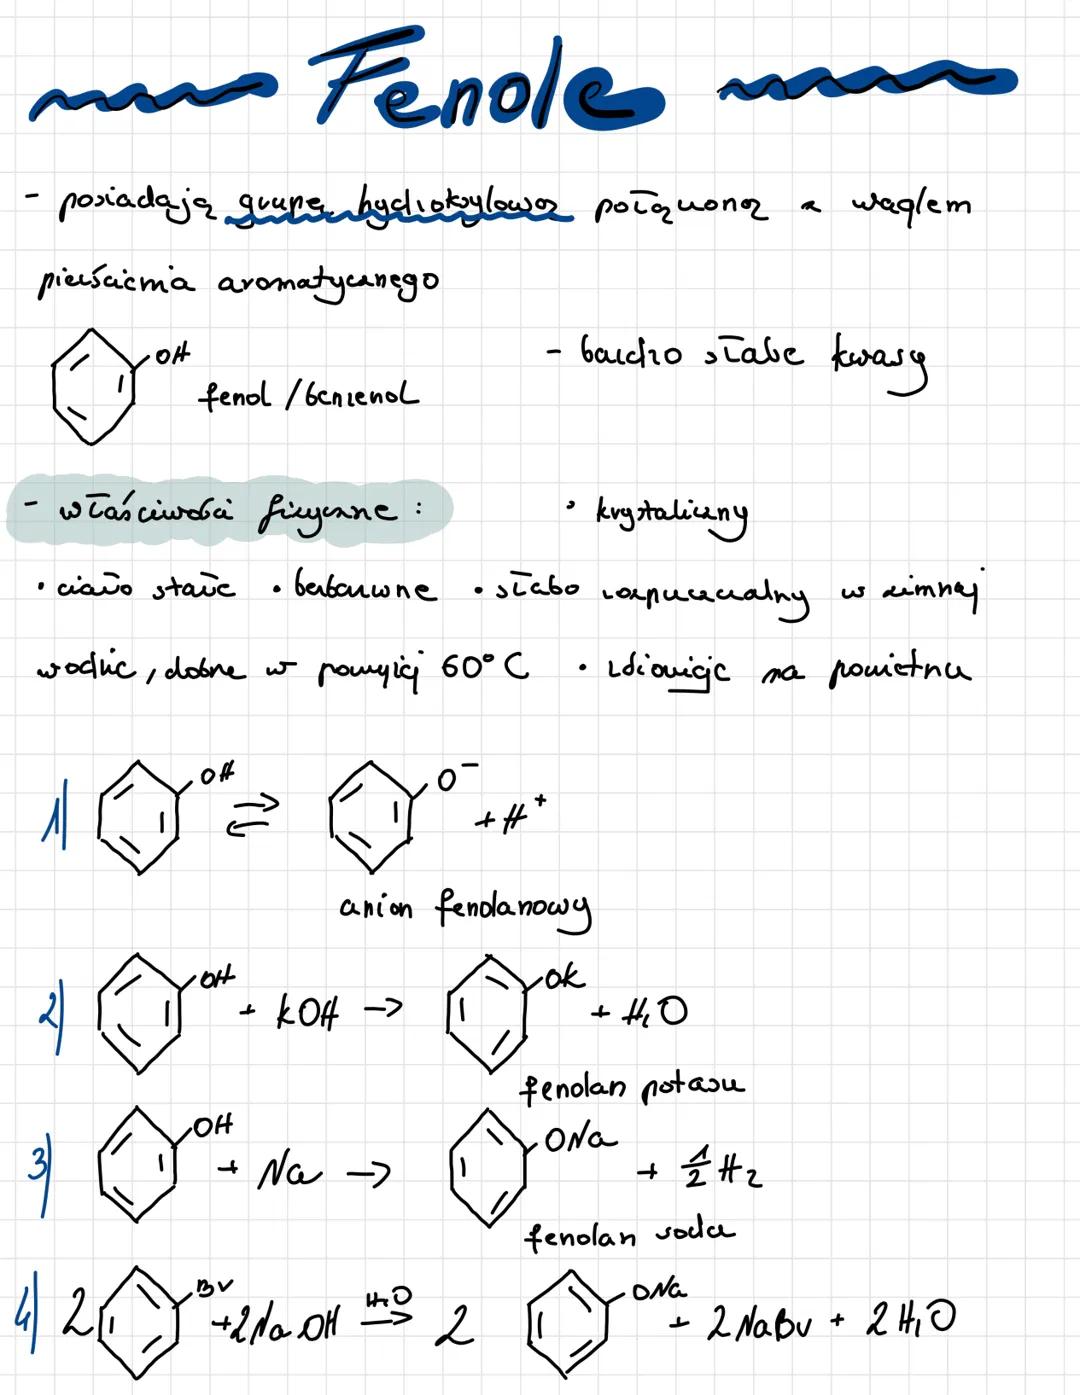 Fenole
- posiadają grupę hydroksylową połączoną z węglem
pierścienia aromatycznego
OH
fenol / benzenol
- bardzo słabe kwasy
- właściwości fizyczne :
• krystaliczny
• ciało stałe • bezbarwne • słabo rozpuszczalny w zimnej
wodzie, dobrze w powyżej 60°C • różowieje na powietrzu
1) OH ⇌ O⁻ + H⁺
anion fenolanowy
2) OH + KOH → OK + H₂O
fenolan potasu
3) OH + Na → ONa + 1/2 H₂
fenolan sodu
4) 2 Br + 2 NaOH H₂O → 2 ONa + 2 NaBr + 2 H₂O